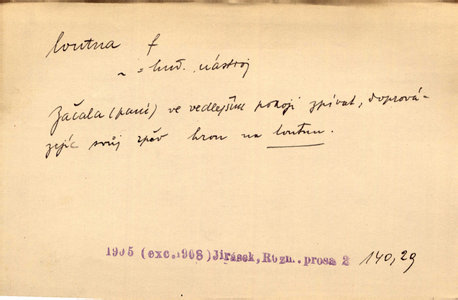 loutna f
~ = hud. nástroj
Začala (paní) ve vedlejším pokoji zpívat, doprová-
zejíc svůj zpěv hrou na loutnu.
1905 (exc.1908) Jirásek, Rozm. prosa 2 140,29